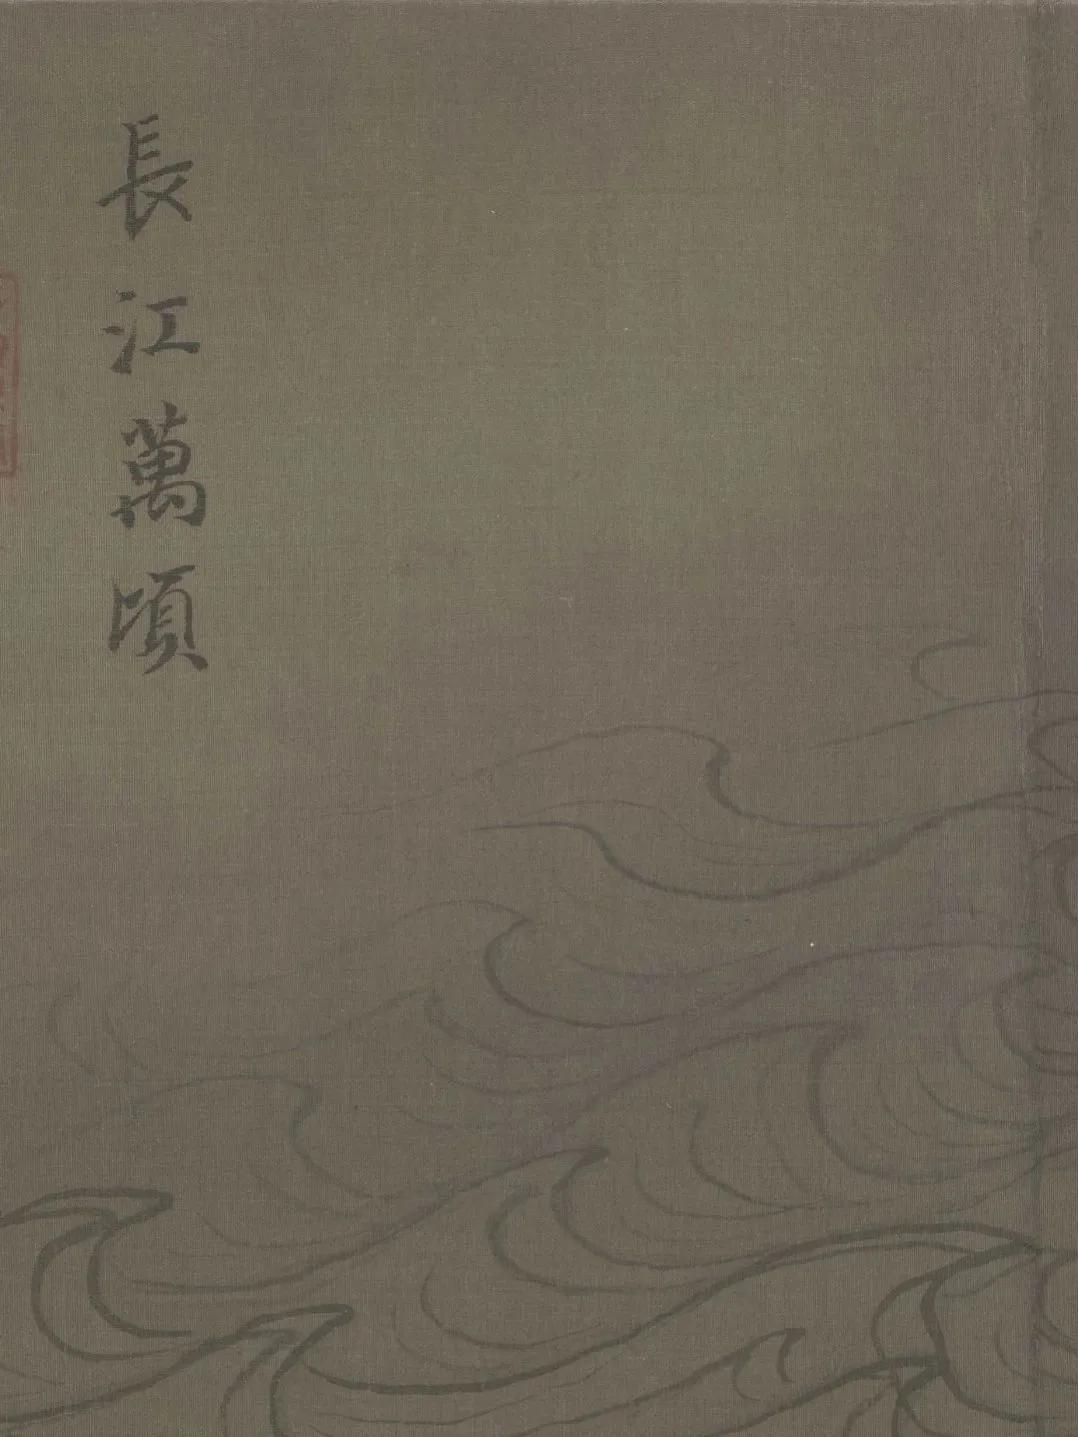 長江萬頃